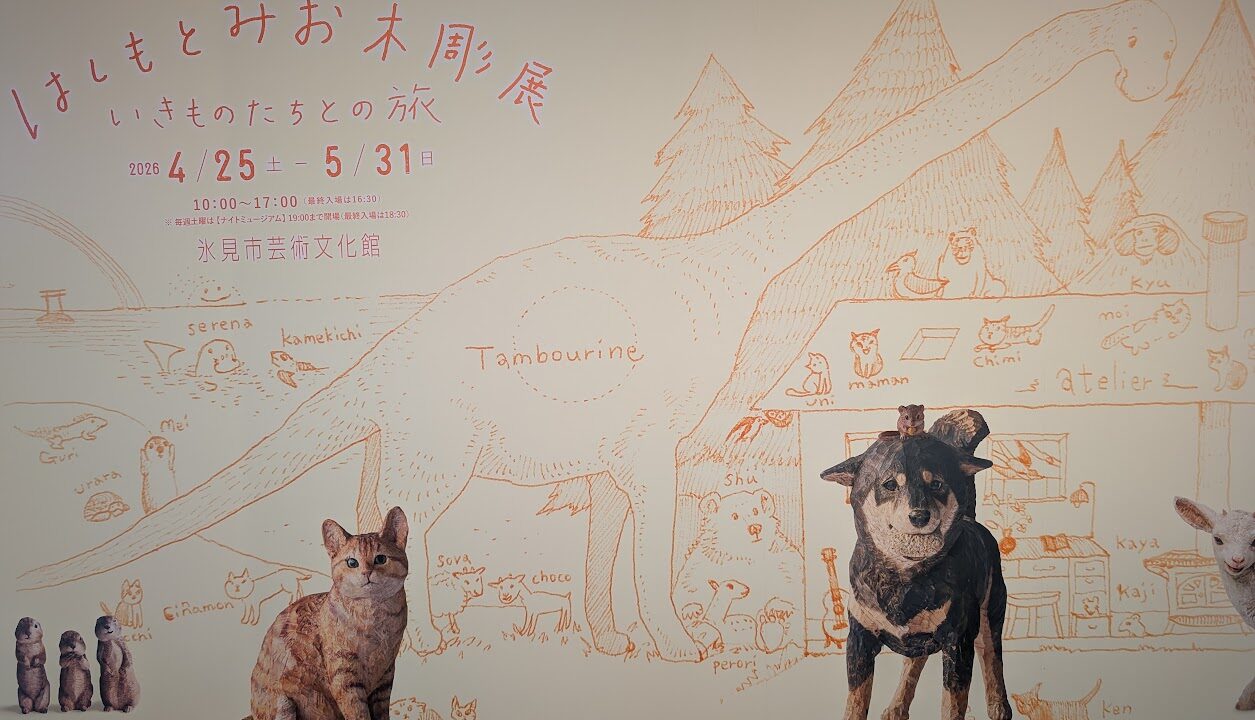 はしもとみお木彫展
いきものたちとの旅
2026 4/25 土 – 5/31 日
10:00～17:00（最終入場は16:30）
※ 毎週土曜は【ナイトミュージアム】19:00まで開場（最終入場は18:30）
氷見市芸術文化館
serena
kamekichi
Tambourine
Kyu
moi
chimi
maman
uni
atelier
Guri
Mei
urara
shu
sova
choco
Kaya
Kaji
perori
Ken